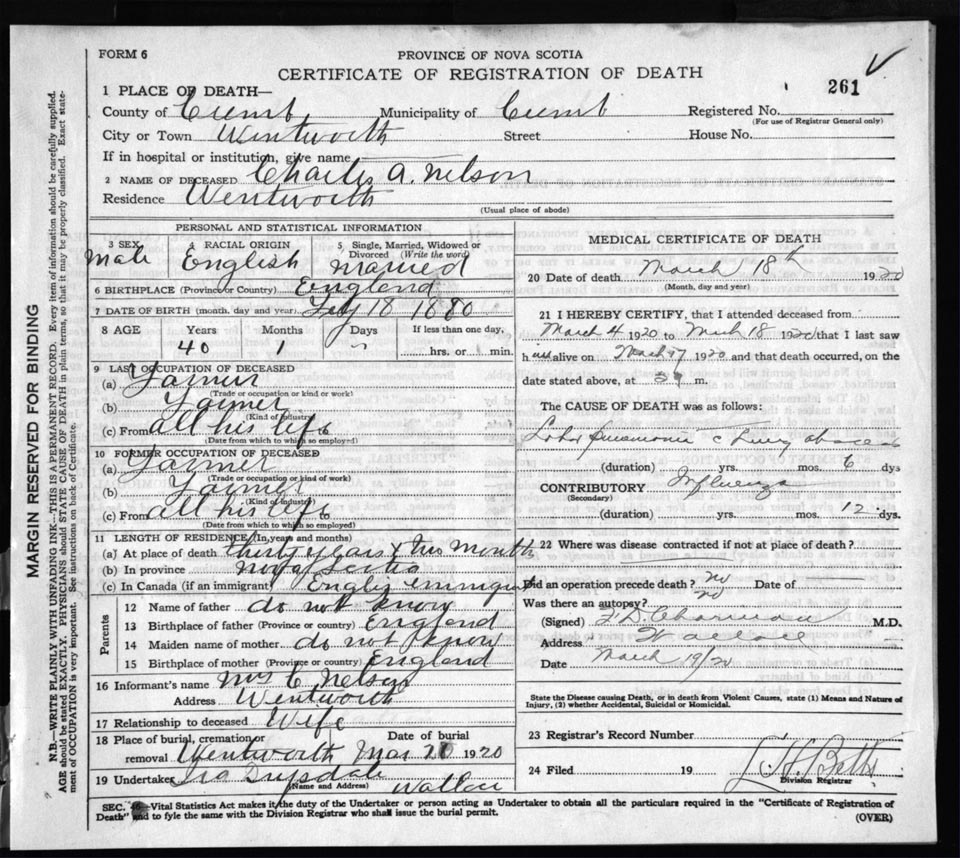 FORM 6
PROVINCE OF NOVA SCOTIA
CERTIFICATE OF REGISTRATION OF DEATH
261
1 PLACE OF DEATH—
County of Cumb Municipality of Cumb Registered No.
(For use of Registrar General only)
City or Town Wentworth Street House No.
If in hospital or institution, give name
2 NAME OF DECEASED Charles A. Nelson
Residence Wentworth
(Usual place of abode)
PERSONAL AND STATISTICAL INFORMATION
3 SEX 4 RACIAL ORIGIN 5 Single, Married, Widowed or Divorced (Write the word)
Male English Married
6 BIRTHPLACE (Province or Country) England
7 DATE OF BIRTH (month, day and year) 18 1880
8 AGE Years Months Days If less than one day,
40 1 " hrs. or min.
9 LAST OCCUPATION OF DECEASED
(a) Farmer
(Trade or occupation or kind of work)
(b) Farmer
(Kind of Industry)
(c) From all his life
(Date from which to which so employed)
10 FORMER OCCUPATION OF DECEASED
(a) Farmer
(Trade or occupation or kind of work)
(b) Farmer
(Kind of Industry)
(c) From all his life
(Date from which to which so employed)
11 LENGTH OF RESIDENCE (In years and months)
(a) At place of death thirty years & two months
(b) In province Nova Scotia
(c) In Canada (if an immigrant)
Parents
12 Name of father do not know
13 Birthplace of father (Province or country) England
14 Maiden name of mother do not know
15 Birthplace of mother (Province or country) England
16 Informant's name Mrs C Nelson
Address Wentworth
17 Relationship to deceased Wife
18 Place of burial, cremation or removal Wentworth
Date of burial Mar 1920
19 Undertaker Ira Drysdale
(Name and Address) Wallace
MEDICAL CERTIFICATE OF DEATH
20 Date of death March 18th 1920
(Month, day and year)
21 I HEREBY CERTIFY, that I attended deceased from
March 4 1920 to March 18 1920 that I last saw
h alive on March 17 1920 and that death occurred, on the
date stated above, at m.
The CAUSE OF DEATH was as follows:
Lobar pneumonia c Lung abscess
(duration) yrs. mos. 6 dys
CONTRIBUTORY Influenza
(Secondary)
(duration) yrs. mos. 12 dys.
22 Where was disease contracted if not at place of death?
Did an operation precede death? no Date of
Was there an autopsy? no
(Signed) M.D.
Address Wallace
Date March 19/20
State the Disease causing Death, or in death from Violent Causes, state (1) Means and Nature of
Injury, (2) whether Accidental, Suicidal or Homicidal.
23 Registrar's Record Number
24 Filed 19
Division Registrar
SEC. —Vital Statistics Act makes it the duty of the Undertaker or person acting as Undertaker to obtain all the particulars required in the "Certificate of Registration of
Death" and to fyle the same with the Division Registrar who shall issue the burial permit.
(OVER)
MARGIN RESERVED FOR BINDING
N.B.—WRITE PLAINLY WITH UNFADING INK—THIS IS A PERMANENT RECORD. Every item of information should be carefully supplied.
AGE should be stated EXACTLY. PHYSICIANS should STATE CAUSE OF DEATH in plain terms, so that it may be properly classified. Exact state-
ment of OCCUPATION is very important. See instructions on back of Certificate.